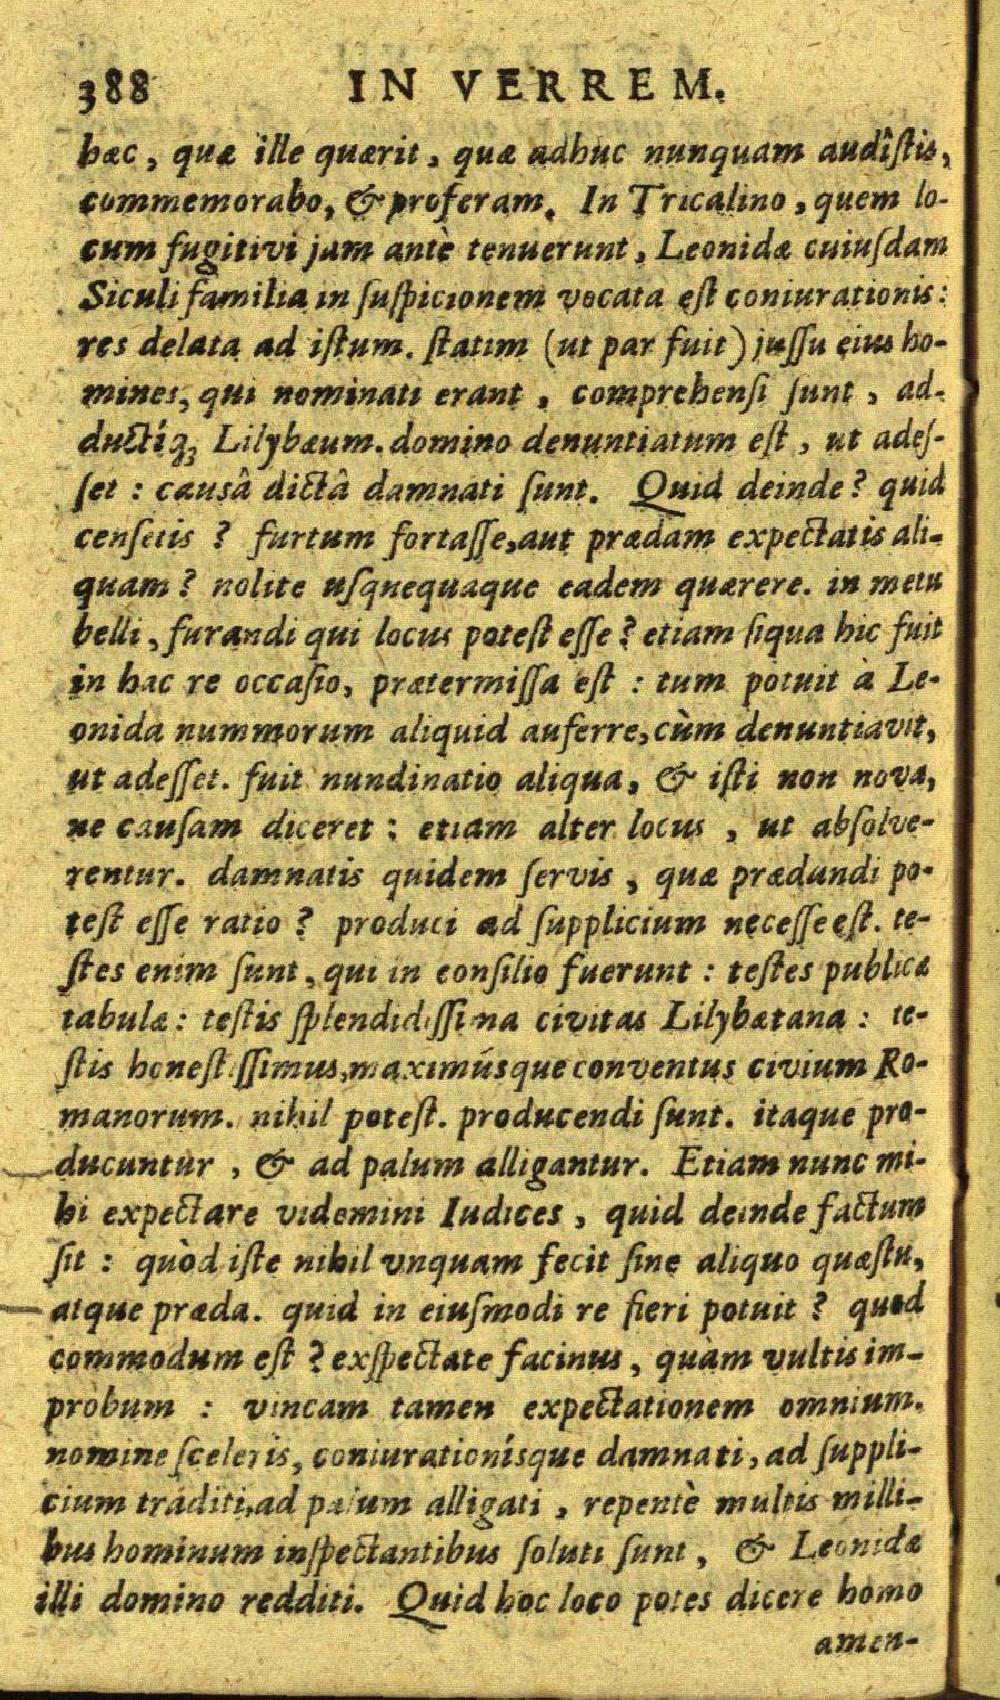 388 IN VERREM.
hæc, quæ ille quærit, quæ adhuc nunquam audîſtis,
commemorabo, & proferam. In Tricalino, quem lo-
cum fugitivi jam antè tenuerunt, Leonidæ cuiuſdam
Siculi familia in ſuſpicionem vocata eſt coniurationis:
res delata ad iſtum. ſtatim (ut par fuit) juſſu eius ho-
mines, qui nominati erant, comprehenſi ſunt, ad-
ductíq; Lilybæum. domino denuntiatum eſt, ut adeſ-
ſet: causâ dictâ damnati ſunt. Quid deinde? quid
cenſetis? furtum fortaſſe, aut prædam expectatis ali-
quam? nolite uſquequaque eadem quærere. in metu
belli, furandi qui locus poteſt eſſe? etiam ſiqua hic fuit
in hac re occaſio, prætermiſſa eſt: tum potuit à Le-
onida nummorum aliquid auferre, cùm denuntiavit,
ut adeſſet. fuit nundinatio aliqua, & iſti non nova,
ne cauſam diceret: etiam alter locus, ut abſolve-
rentur. damnatis quidem ſervis, quæ prædandi po-
teſt eſſe ratio? produci ad ſupplicium neceſſe eſt. te-
ſtes enim ſunt, qui in conſilio fuerunt: teſtes publicæ
tabulæ: teſtis ſplendidiſſima civitas Lilybætana: te-
ſtis honeſtiſſimus, maximúsque conventus civium Ro-
manorum. nihil poteſt. producendi ſunt. itaque pro-
ducuntur, & ad palum alligantur. Etiam nunc mi-
hi expectare videmini Iudices, quid deinde factum
ſit: quòd iſte nihil vnquam fecit ſine aliquo quæſtu,
atque præda. quid in eiuſmodi re fieri potuit? quod
commodum eſt? exſpectate facinus, quàm vultis im-
probum: vincam tamen expectationem omnium.
nomine ſceleris, coniurationísque damnati, ad ſuppli-
cium traditi, ad palum alligati, repentè multis milli-
bus hominum inſpectantibus ſoluti ſunt, & Leonidæ
illi domino redditi. Quid hoc loco potes dicere homo
amen-